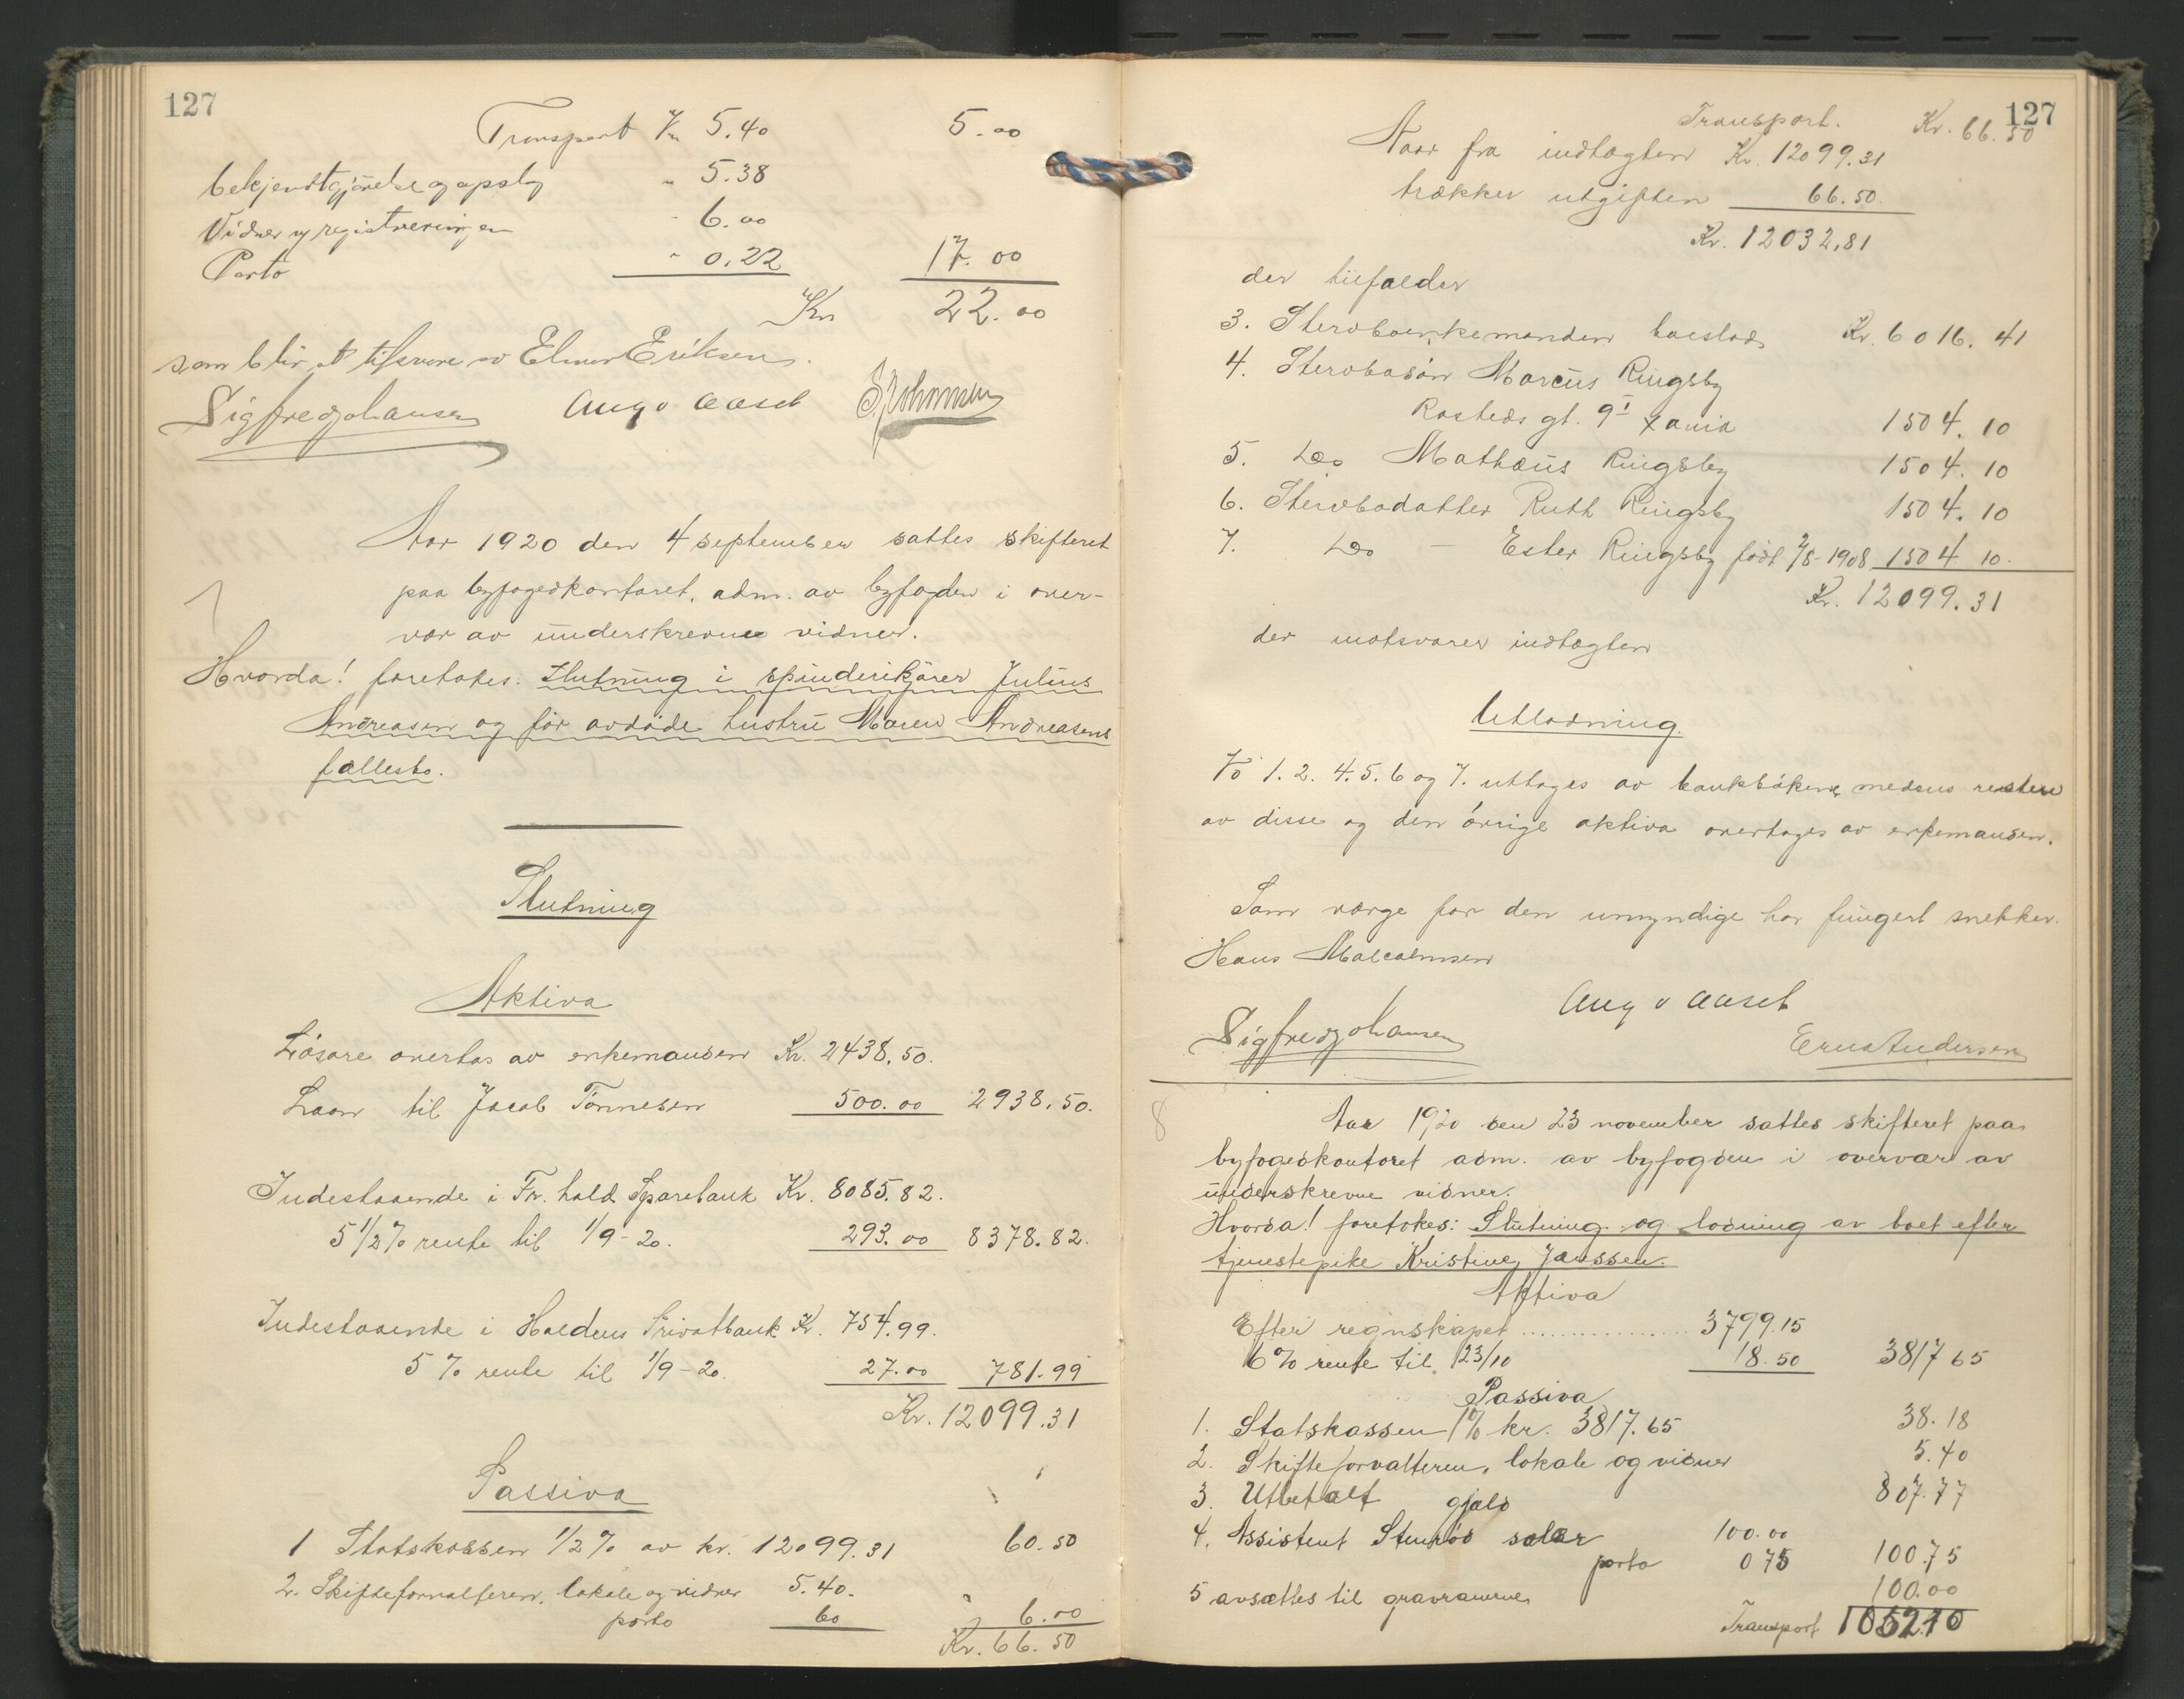 127
Transport Kr 5.40 5.00
bekjendtgjørelse og opslag " 5.38
Vidner og registreringen " 6.00
Porto " 0.22 17.00
Kr 22.00
som blir at tilsvare av Elmer Eriksen.
Sigfred Johansen Aug v Aasel S. Johannsen
Aar 1920 den 4 september sattes skifteret
paa byfogedkontoret, adm. av byfogden i over-
vær av underskrevne vidner.
7
Hvorda! foretokes: Slutning i spinderikjører Julius
Andreasen og før avdøde hustru Maren Andreasens
fællesbo.
Slutning
Aktiva
Løsøre overtas av enkemanden Kr. 2438.50.
Laan til Jacob Tønnesen 500.00 2938.50.
Indestaaende i Fr.hald Sparebank Kr. 8085.82.
5 1/2 % rente til 1/9-20. 293.00 8378.82.
Indestaaende i Haldens Privatbank Kr. 754.99.
5 % rente til 1/9-20. 27.00 781.99
Kr. 12099.31
Passiva
1 Statskassen 1/2 % av kr. 12099.31 60.50
2. Skifteforvalteren, lokale og vidner 5.40.
porto 60 6.00
Kr. 66.50
127
Transport. Kr. 66.50
Naar fra indtægten Kr. 12099.31
trækkes utgiften 66.50.
Kr. 12032,81
der tilfalder
3. Stervboenkemanden boeslod Kr. 6016.41
4. Stervbosøn Marcus Ringsby
Rosteds gt. 9 I Xania 1504.10
5. Do Mathæus Ringsby 1504.10
6. Stervbodatter Ruth Ringsby 1504.10
7. Do — Ester Ringsby født 2/8-1908 1504 10.
Kr. 12099.31
der motsvarer indtægten
Utlodning.
Fo 1. 2. 4. 5. 6 og 7. uttages av bankbøkene, medens resten
av disse og den øvrige aktiva overtages av enkemanden.
Som værge for den umyndige har fungert snekker
Hans Malcolmsen
Aug v Aasel
Sigfred Johansen Ernst Andersen
8
Aar 1920 den 23 november sattes skifteret paa
byfogedkontoret adm. av byfogden i overvær av
underskrevne vidner.
Hvorda! foretokes: Slutning og lodning av boet efter
tjenestepike Kristine Janssen.
Aktiva
Efter regnskapet ................ 3799.15
6 % rente til 23/10 18.50 3817 65
Passiva
1. Statskassen 1% kr. 3817.65 38.18
2. Skifteforvalteren, lokale og vidner 5.40
3. Utbetalt gjæld 807.77
4. Assistent Stenrød salær 100.00
porto 0 75 100.75
5 avsættes til gravramme 100.00
Transport 1052.10